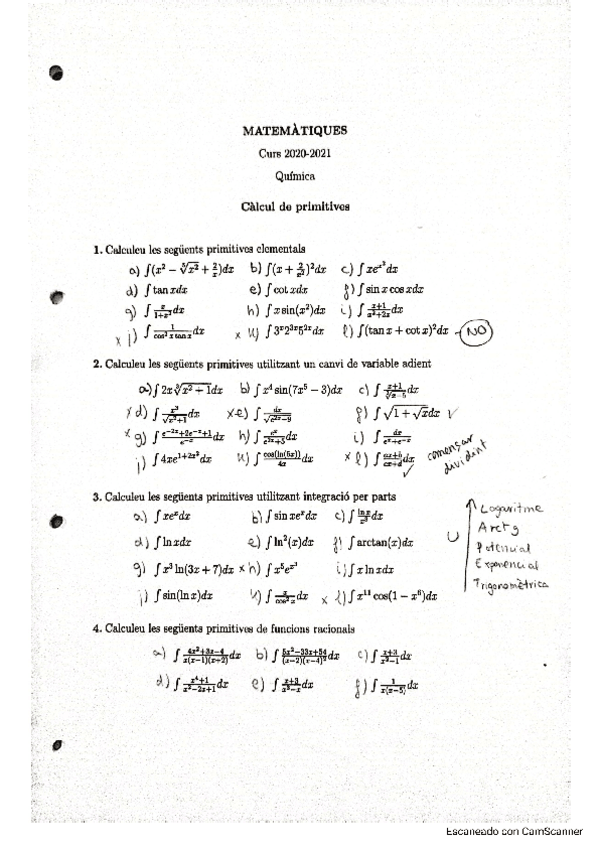 MATEMÀTIQUES
Curs 2020-2021
Química
Càlcul de primitives
1. Calculeu les següents primitives elementals
a) ∫(x² − ∛x² + 2/x)dx b) ∫(x + 2/x)²dx c) ∫xe^{x²}dx
d) ∫tan xdx e) ∫cot xdx f) ∫sin x cos xdx
g) ∫x/(1+x²)dx h) ∫x sin(x²)dx i) ∫(x+1)/(x²+2x)dx
x j) ∫1/(cos² x tan x)dx x k) ∫3^x2^{3x}5^{2x}dx l) ∫(tan x + cot x)²dx NO
2. Calculeu les següents primitives utilitzant un canvi de variable adient
a) ∫2x∛(x² + 1)dx b) ∫x⁴ sin(7x⁵ − 3)dx c)
d) x e) f) ∫√(1 + √x)dx ✓
x g) ∫(e^{−2x}+2e^{−x}+1)/e^{−x}dx h) i) ∫dx/(e^x+e^{−x})
j) ∫4xe^{1+2x²}dx k) ∫cos(ln(5x))/4x dx x l) ∫(ax+b)/(cx+d)dx ✓ començar dividint
3. Calculeu les següents primitives utilitzant integració per parts
a) ∫xe^xdx b) ∫sin xe^xdx c)
d) ∫ln xdx e) ∫ln²(x)dx f) ∫arctan(x)dx
g) ∫x³ ln(3x + 7)dx x h) ∫x⁵e^{x³} i) ∫x ln xdx
j) ∫sin(ln x)dx k) ∫x/cos² x dx x l) ∫x¹¹ cos(1 − x⁶)dx
U
Logaritme
Arctg
Potencial
Exponencial
Trigonomètrica
4. Calculeu les següents primitives de funcions racionals
a) ∫(4x²+3x−4)/(x(x−1)(x+2))dx b) ∫(5x²−33x+54)/((x−2)(x−4)²)dx c) ∫(x+3)/(x²−1)dx
d) ∫(x⁴+1)/(x²−2x+1)dx e) f) ∫1/(x(x−5))dx
Escaneado con CamScanner